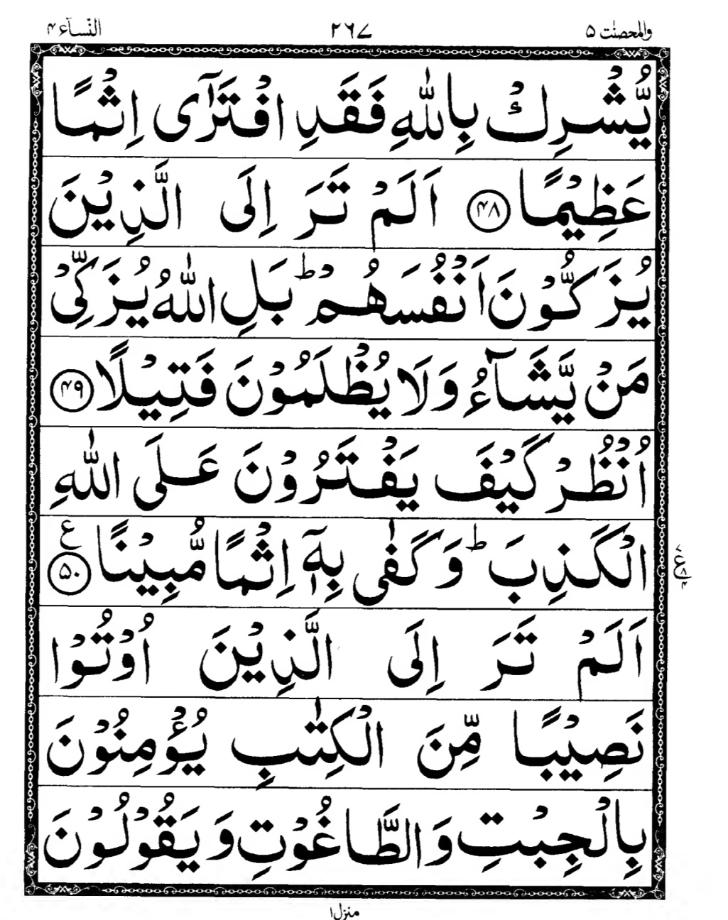 والمحصنٰت ۵ ۲۶۷ النسآء ۴
يُّشْرِكْ بِاللّٰهِ فَقَدِ افْتَرٰٓى اِثْمًا
عَظِيْمًا ﴿۴۸﴾ اَلَمْ تَرَ اِلَى الَّذِيْنَ
يُزَكُّوْنَ اَنْفُسَهُمْ ؕ بَلِ اللّٰهُ يُزَكِّيْ
مَنْ يَّشَآءُ وَلَا يُظْلَمُوْنَ فَتِيْلًا ﴿۴۹﴾
اُنْظُرْ كَيْفَ يَفْتَرُوْنَ عَلَى اللّٰهِ
الْكَذِبَ ؕ وَكَفٰى بِهٖٓ اِثْمًا مُّبِيْنًا ﴿۵۰﴾ ع
اَلَمْ تَرَ اِلَى الَّذِيْنَ اُوْتُوْا
نَصِيْبًا مِّنَ الْكِتٰبِ يُؤْمِنُوْنَ
بِالْجِبْتِ وَالطَّاغُوْتِ وَيَقُوْلُوْنَ
منزل ۱